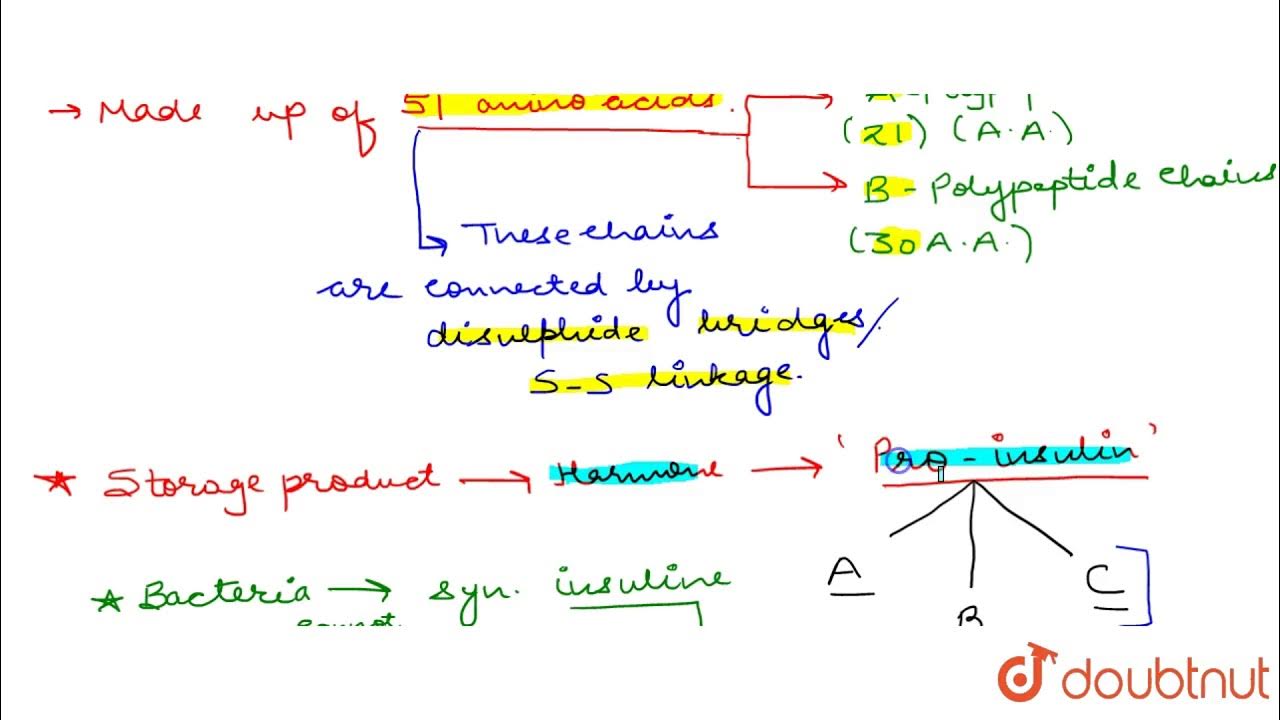 → Made up of 51 amino acids.
(21) (A.A.)
B - Polypeptide chains
(30 A.A.)
These chains
are connected by
disulphide bridges/
S-S linkage.
★ Storage product → Harmone → 'Pro-insulin'
A B C
★ Bacteria → syn. insuline
cannot
doubtnut